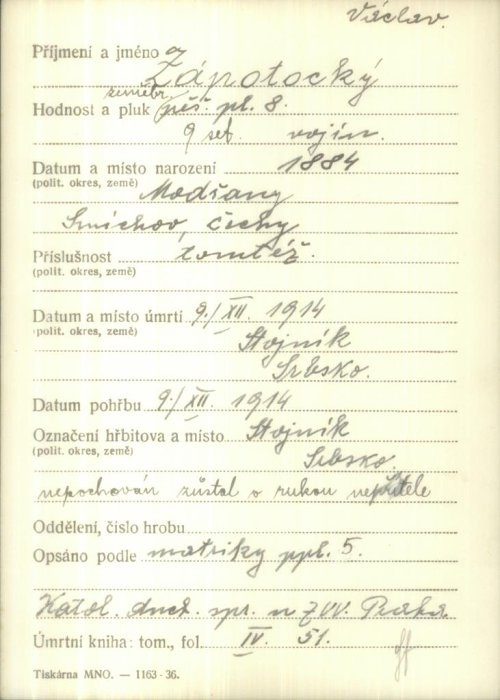 Václav.
Příjmení a jméno
Zápotocký
zeměbr.
Hodnost a pluk pěš. pl. 8.
9 set. vojín.
Datum a místo narození 1884
(polit. okres, země) Modřany
Smíchov, Čechy
Příslušnost tomtéž.
(polit. okres, země)
Datum a místo úmrtí 9./XII. 1914
(polit. okres, země) Stojník
Srbsko.
Datum pohřbu 9./XII. 1914
Označení hřbitova a místo Stojník
(polit. okres, země) Srbsko.
nepochován zůstal v rukou nepřítele
Oddělení, číslo hrobu
Opsáno podle matriky ppl. 5.
Katol. duch. spr. u ZVV. Praha
Úmrtní kniha: tom., fol. IV. 51.
Tiskárna MNO. — 1163-36.